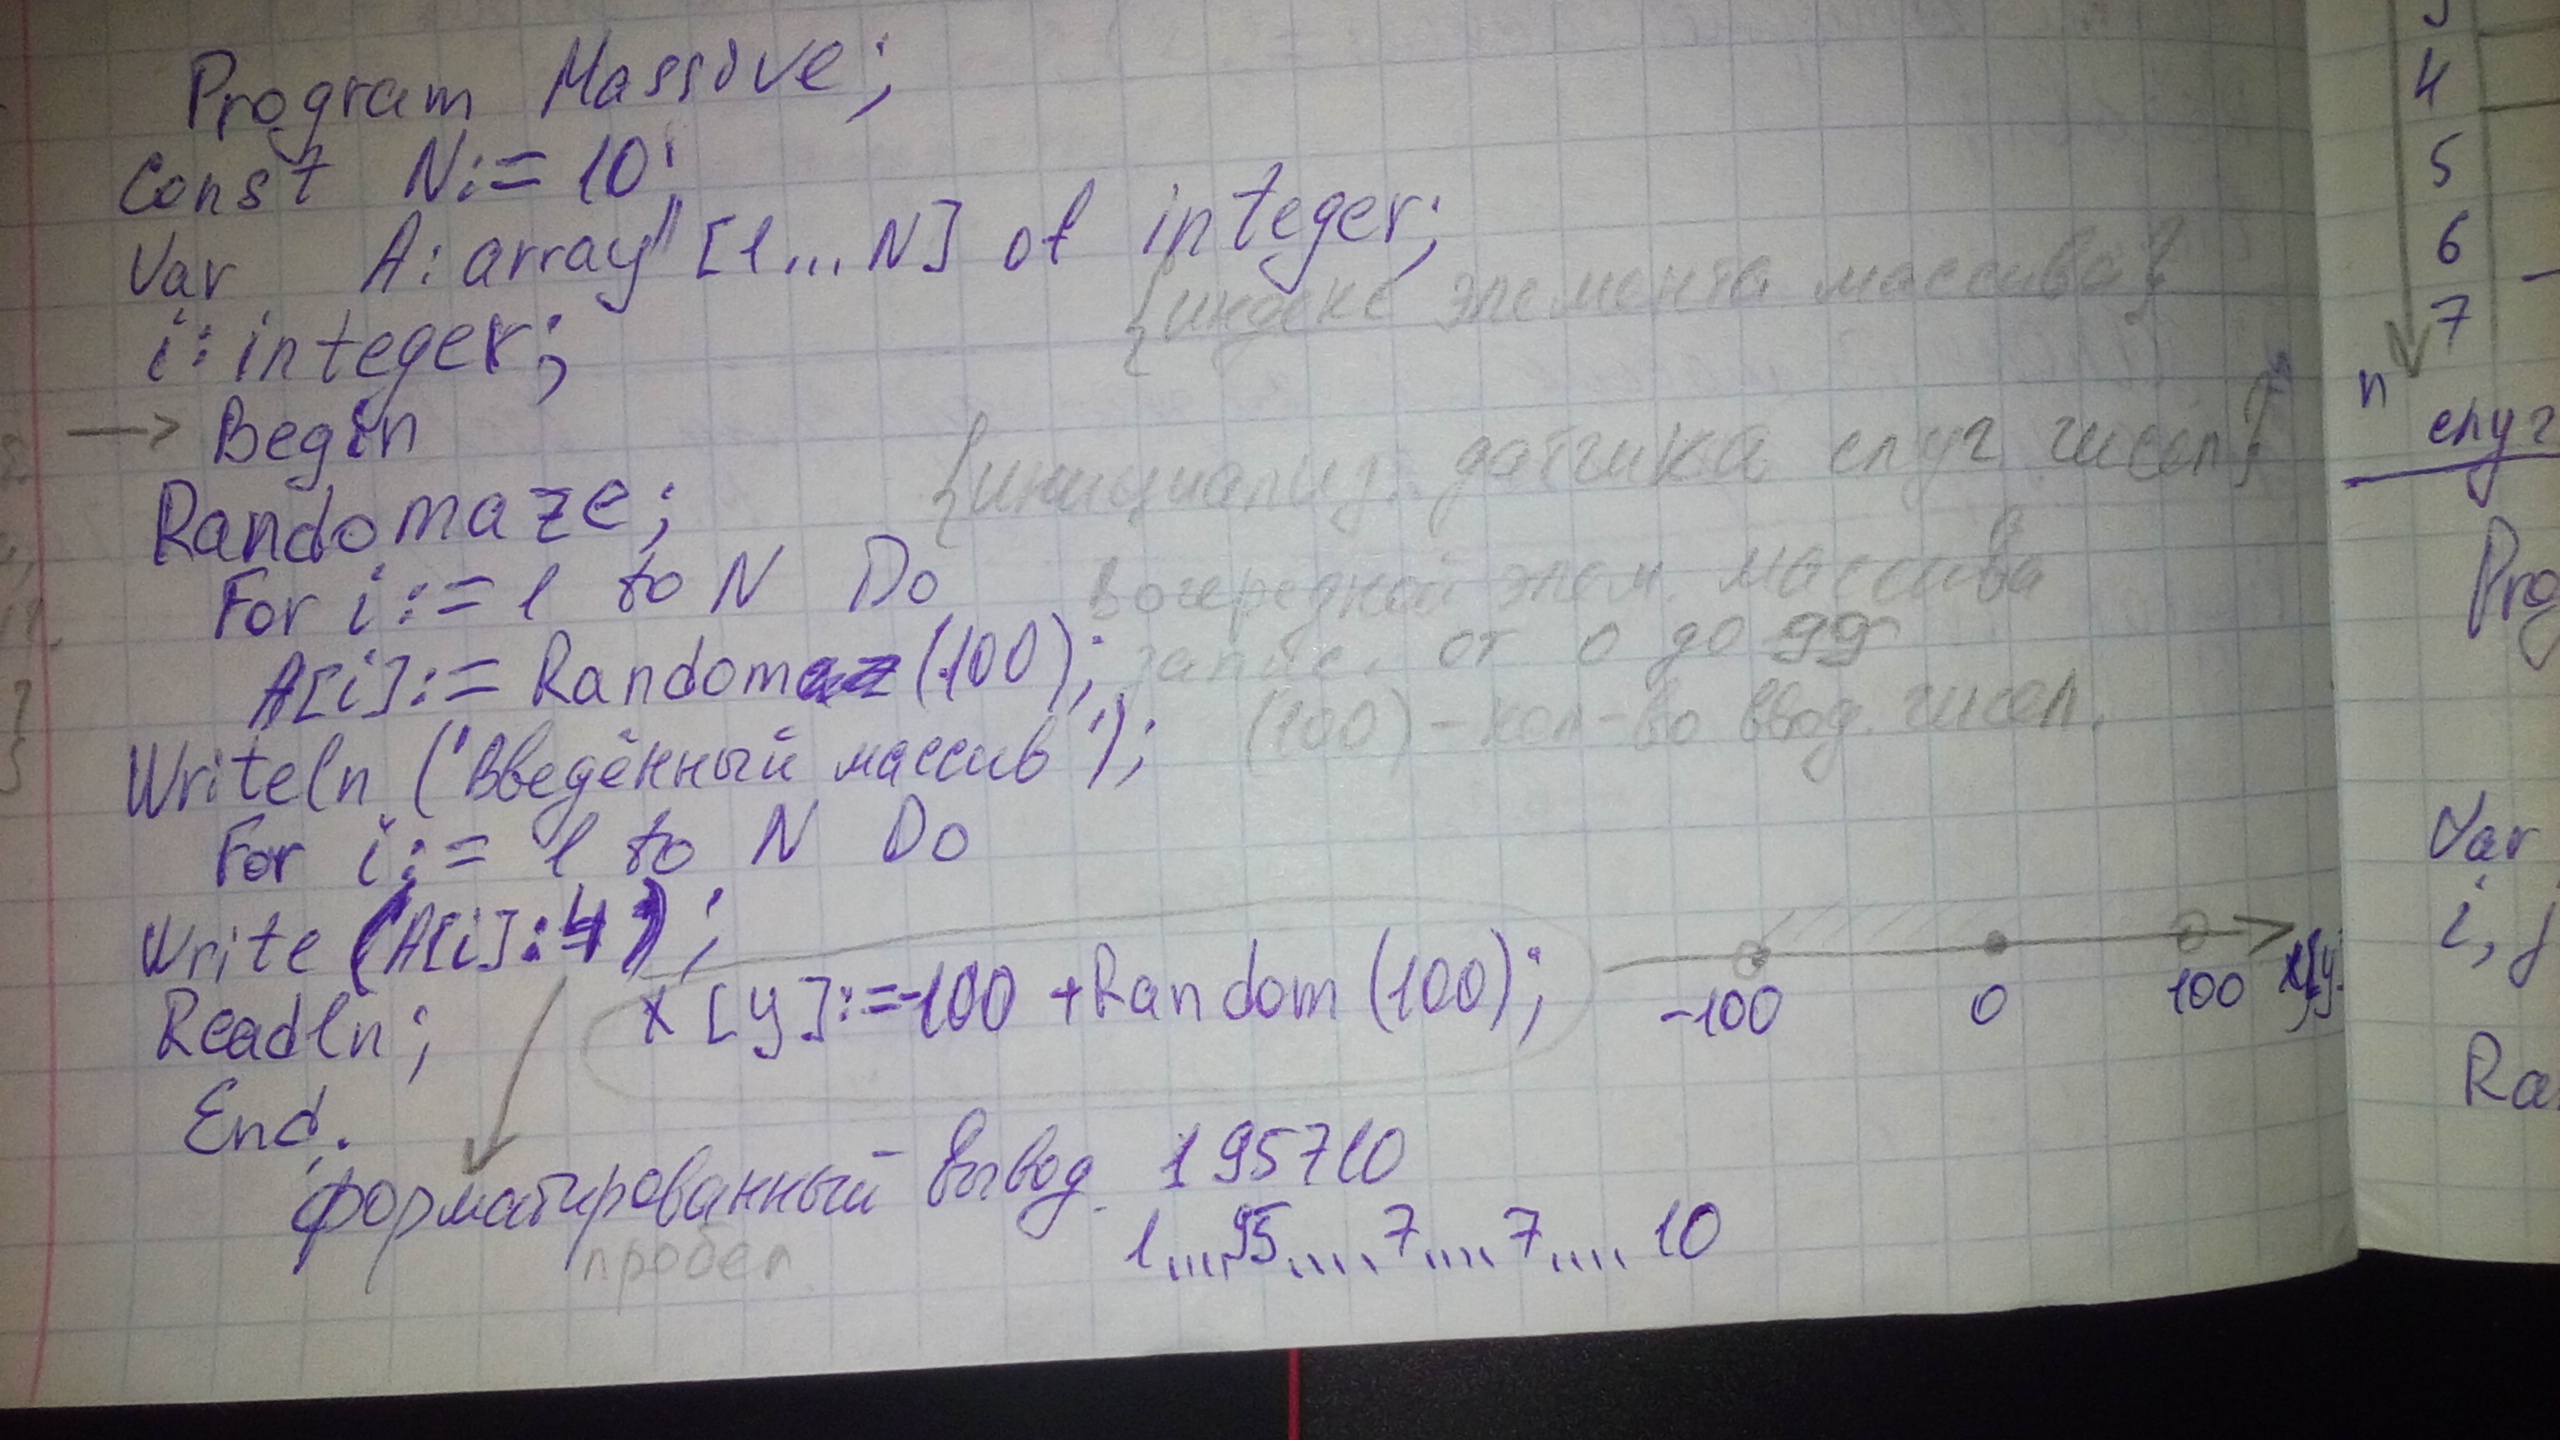 Program Massive;
Const N:= 10;
Var A: array [1...N] of integer;
{индекс элемента массива}
i: integer;
→ Begin
{инициализ. датчика случ чисел}
Randomaze;
For i:= 1 to N Do
в очередной элем. массива
A[i]:= Random (100);
запис. от 0 до 99
(100) - кол-во ввод. чисел.
Writeln ('Введённый массив');
For i:= 1 to N Do
Write (A[i]:4);
x [y]:=-100 + Random (100);
-100 0 100
Readln;
End.
форматированный вывод. 195710
пробел
1....95....7....7....10
4
5
6
7
n
случ
Prog
Var
i, j
Ra